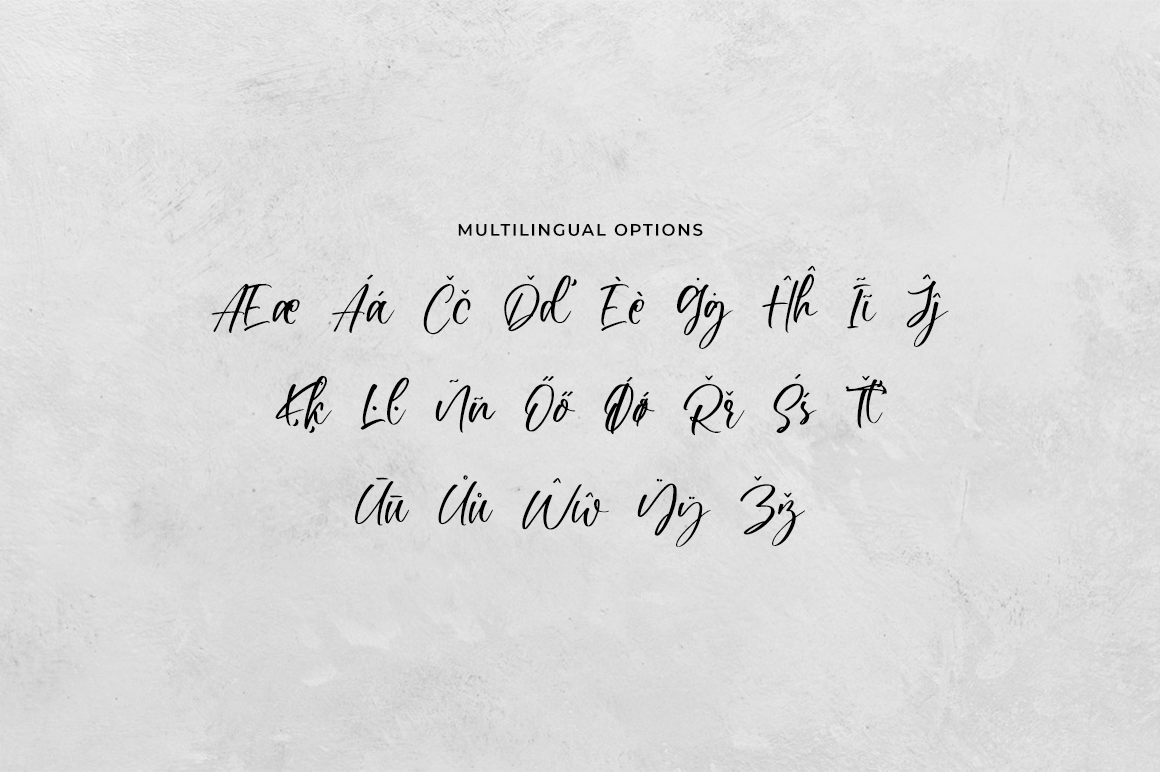 MULTILINGUAL OPTIONS
ÆEæ Áá Čč Ďď Èè Ġġ Ĥĥ Ĩĩ Ĵĵ
Ķķ Ŀŀ Ññ Őő Ǿǿ Řř Śś Ťť
Ūū Ůů Ŵŵ Ÿÿ Žž